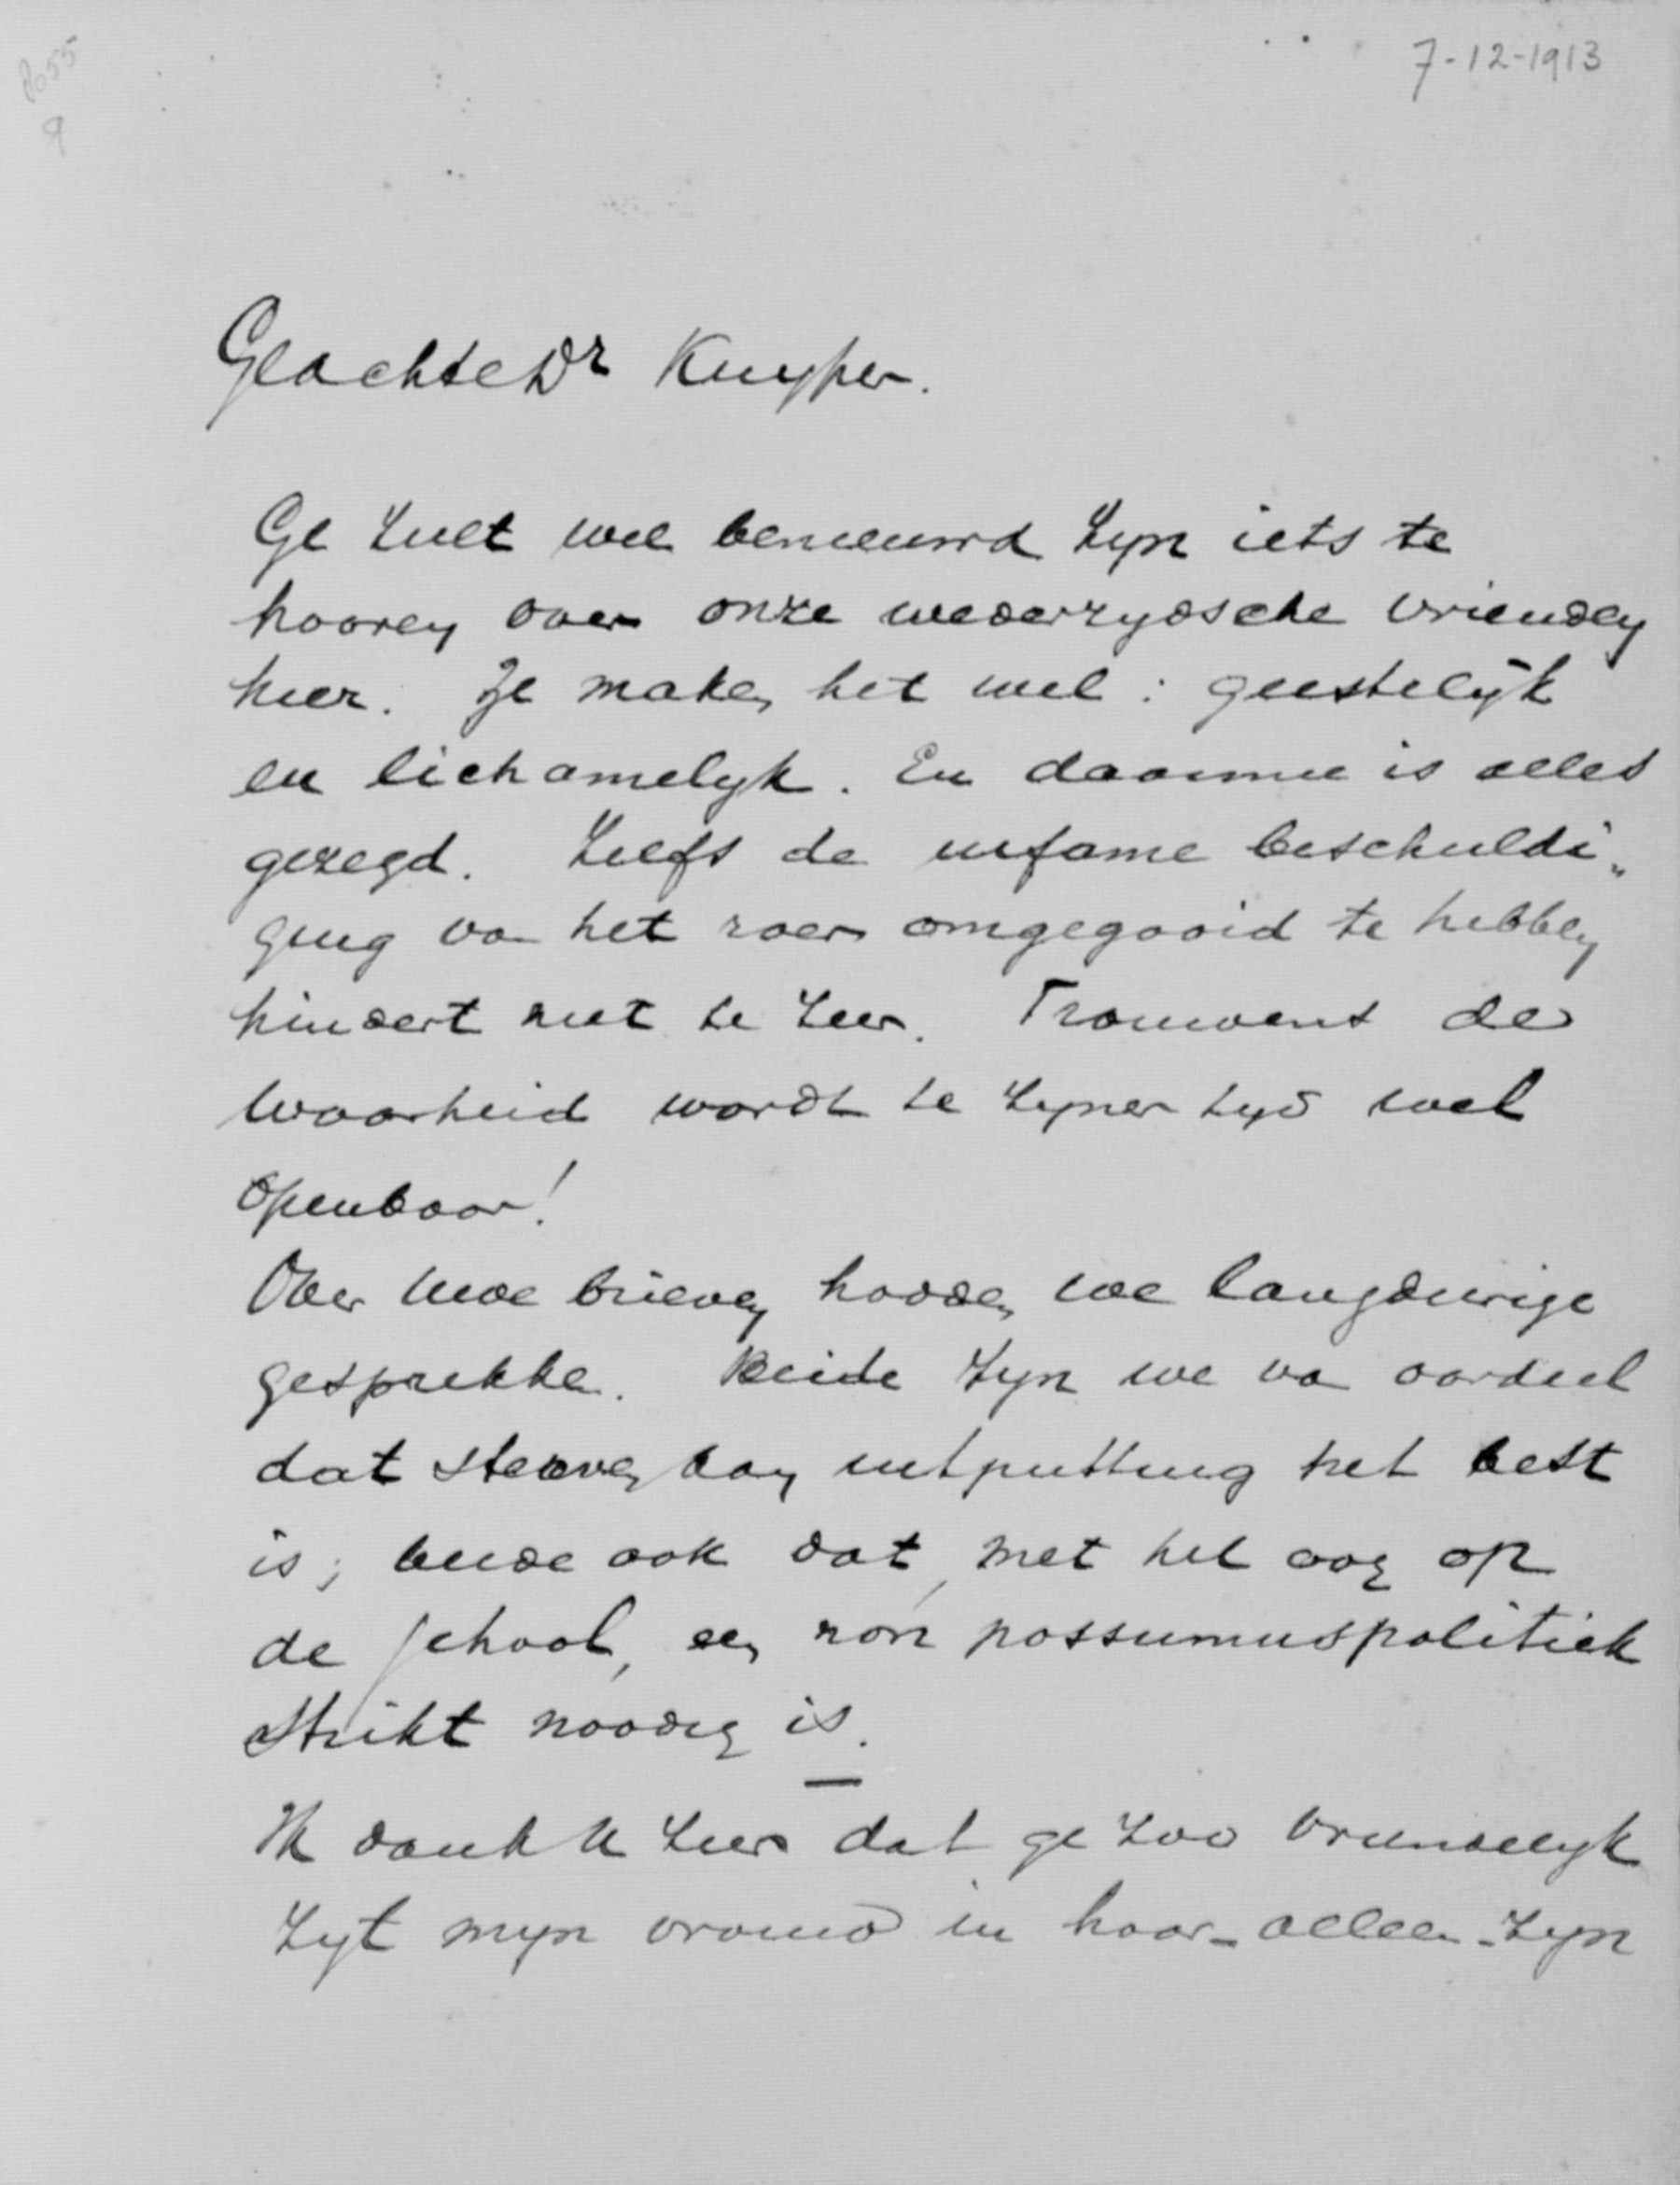 7-12-1913
8055
9
Geachte Dr Kuyper.
Ge zult wel benieuwd zyn iets te
hooren over onze wederzydsche vrienden
hier. Ze maken het wel: geestelyk
en lichamelyk. En daarmee is alles
gezegd. Zelfs de infame beschuldi„
ging van het roer omgegooid te hebben
hindert niet te zeer. Trouwens de
waarheid wordt te zyner tyd wel
openbaar!
Over uwe brieven hadden we langdurige
gesprekken. Beide zyn we van oordeel
dat sterven aan uitputting het best
is; beide ook dat, met het oog op
de school, een non possumuspolitiek
strikt noodig is.
Ik dank U zeer dat ge zoo vriendelyk
zyt myn vrouw in haar-alleen-zyn